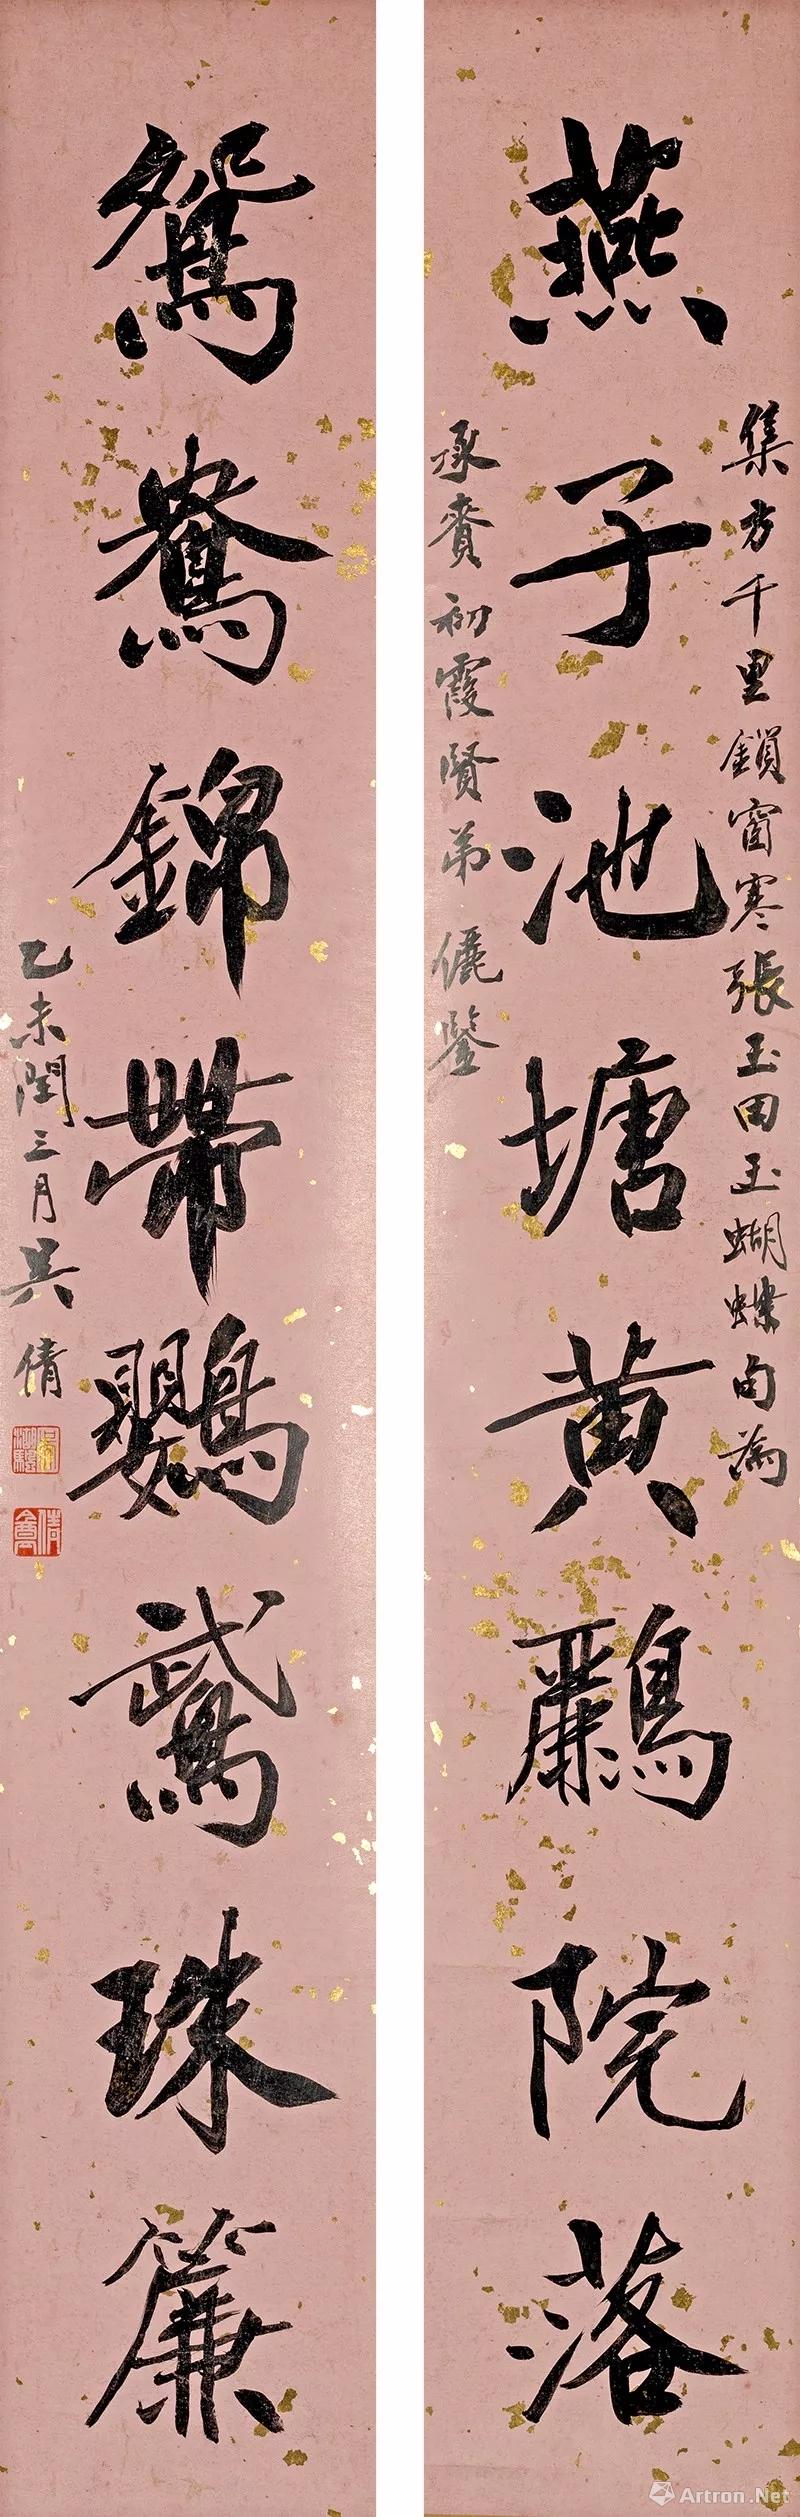 集方千里鎖窗寒張玉田玉蝴蝶句為
燕子池塘黄鸝院落
承賚初霞賢弟儷鑒
鴛鴦錦帶鸚鵡珠簾
乙未閏三月吳倩
倩盦
Artron.Net